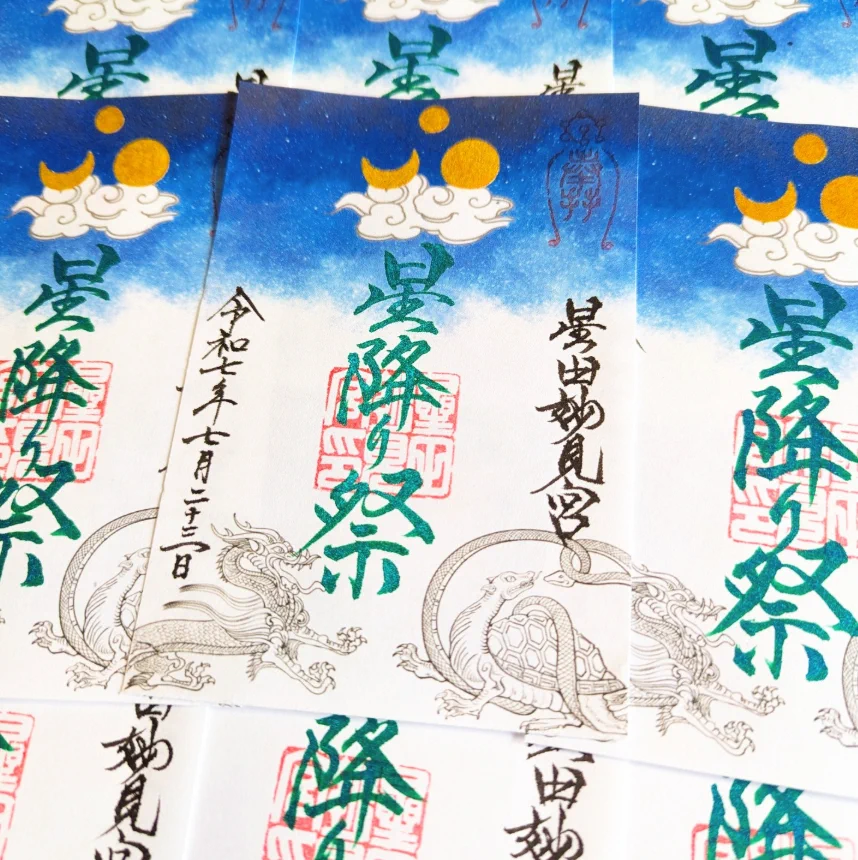 星
星
星
星
星
星田妙見宮
星降り祭
令和七年七月二十三日
星降り祭
星降り祭
妙見
降り
田妙
降